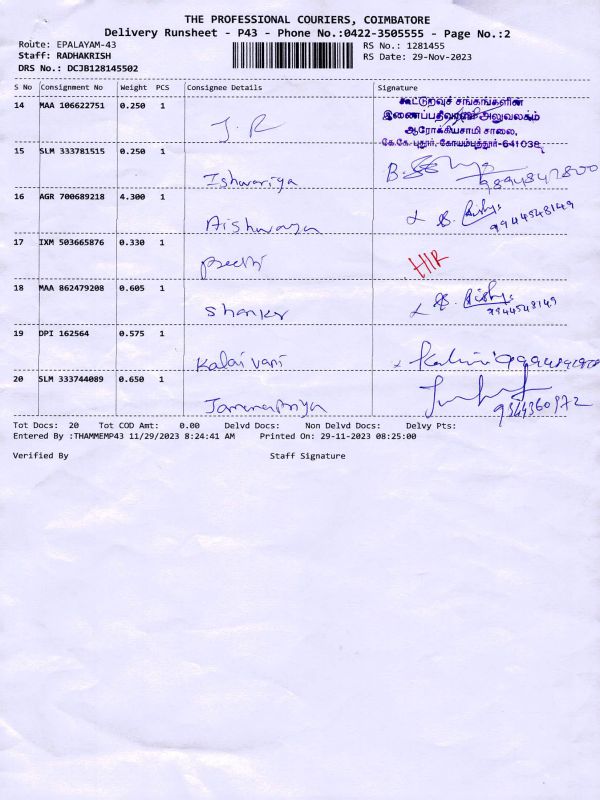 THE PROFESSIONAL COURIERS, COIMBATORE
Delivery Runsheet - P43 - Phone No.:0422-3505555 - Page No.:2
Route: EPALAYAM-43 RS No.: 1281455
Staff: RADHAKRISH RS Date: 29-Nov-2023
DRS No.: DCJB128145502
S No Consignment No Weight PCS Consignee Details Signature
14 MAA 106622751 0.250 1 J. R
கூட்டுறவுச் சங்கங்களின்
இணைப்பதிவாளர் அலுவலகம்
ஆரோக்கியசாமி சாலை,
கே.கே. புதூர், கோயம்புத்தூர்-641038.
15 SLM 333781515 0.250 1 Ishwariya
16 AGR 700689218 4.300 1 Aishwarya 9944548149
17 IXM 503665876 0.330 1 preethi HIR
18 MAA 862479208 0.605 1 Shanker 9944548149
19 DPI 162564 0.575 1 Kalaivani
20 SLM 333744089 0.650 1 Jamunapriya 9344360972
Tot Docs: 20 Tot COD Amt: 0.00 Delvd Docs: Non Delvd Docs: Delvy Pts:
Entered By :THAMMEMP43 11/29/2023 8:24:41 AM Printed On: 29-11-2023 08:25:00
Verified By Staff Signature